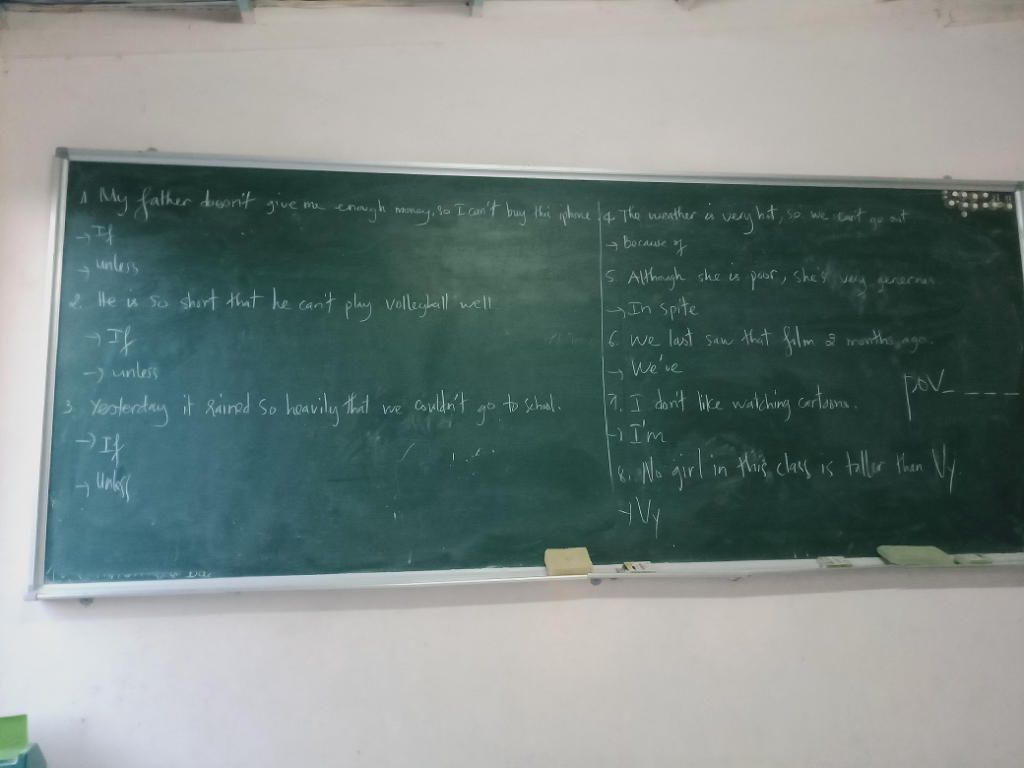 1 My father doesn't give me enough money, so I can't buy this iphone
→ If
→ unless
2. He is so short that he can't play volleyball well
→ If
→ unless
3. Yesterday it rained so heavily that we couldn't go to school.
→ If
→ Unless
4. The weather is very hot, so we can't go out
→ Because of
5. Although she is poor, she's very generous
→ In spite
6. We last saw that film 2 months ago.
→ We've
pov_ _ _ _
7. I don't like watching cartoons.
→ I'm
8. No girl in this class is taller than Vy
→ Vy